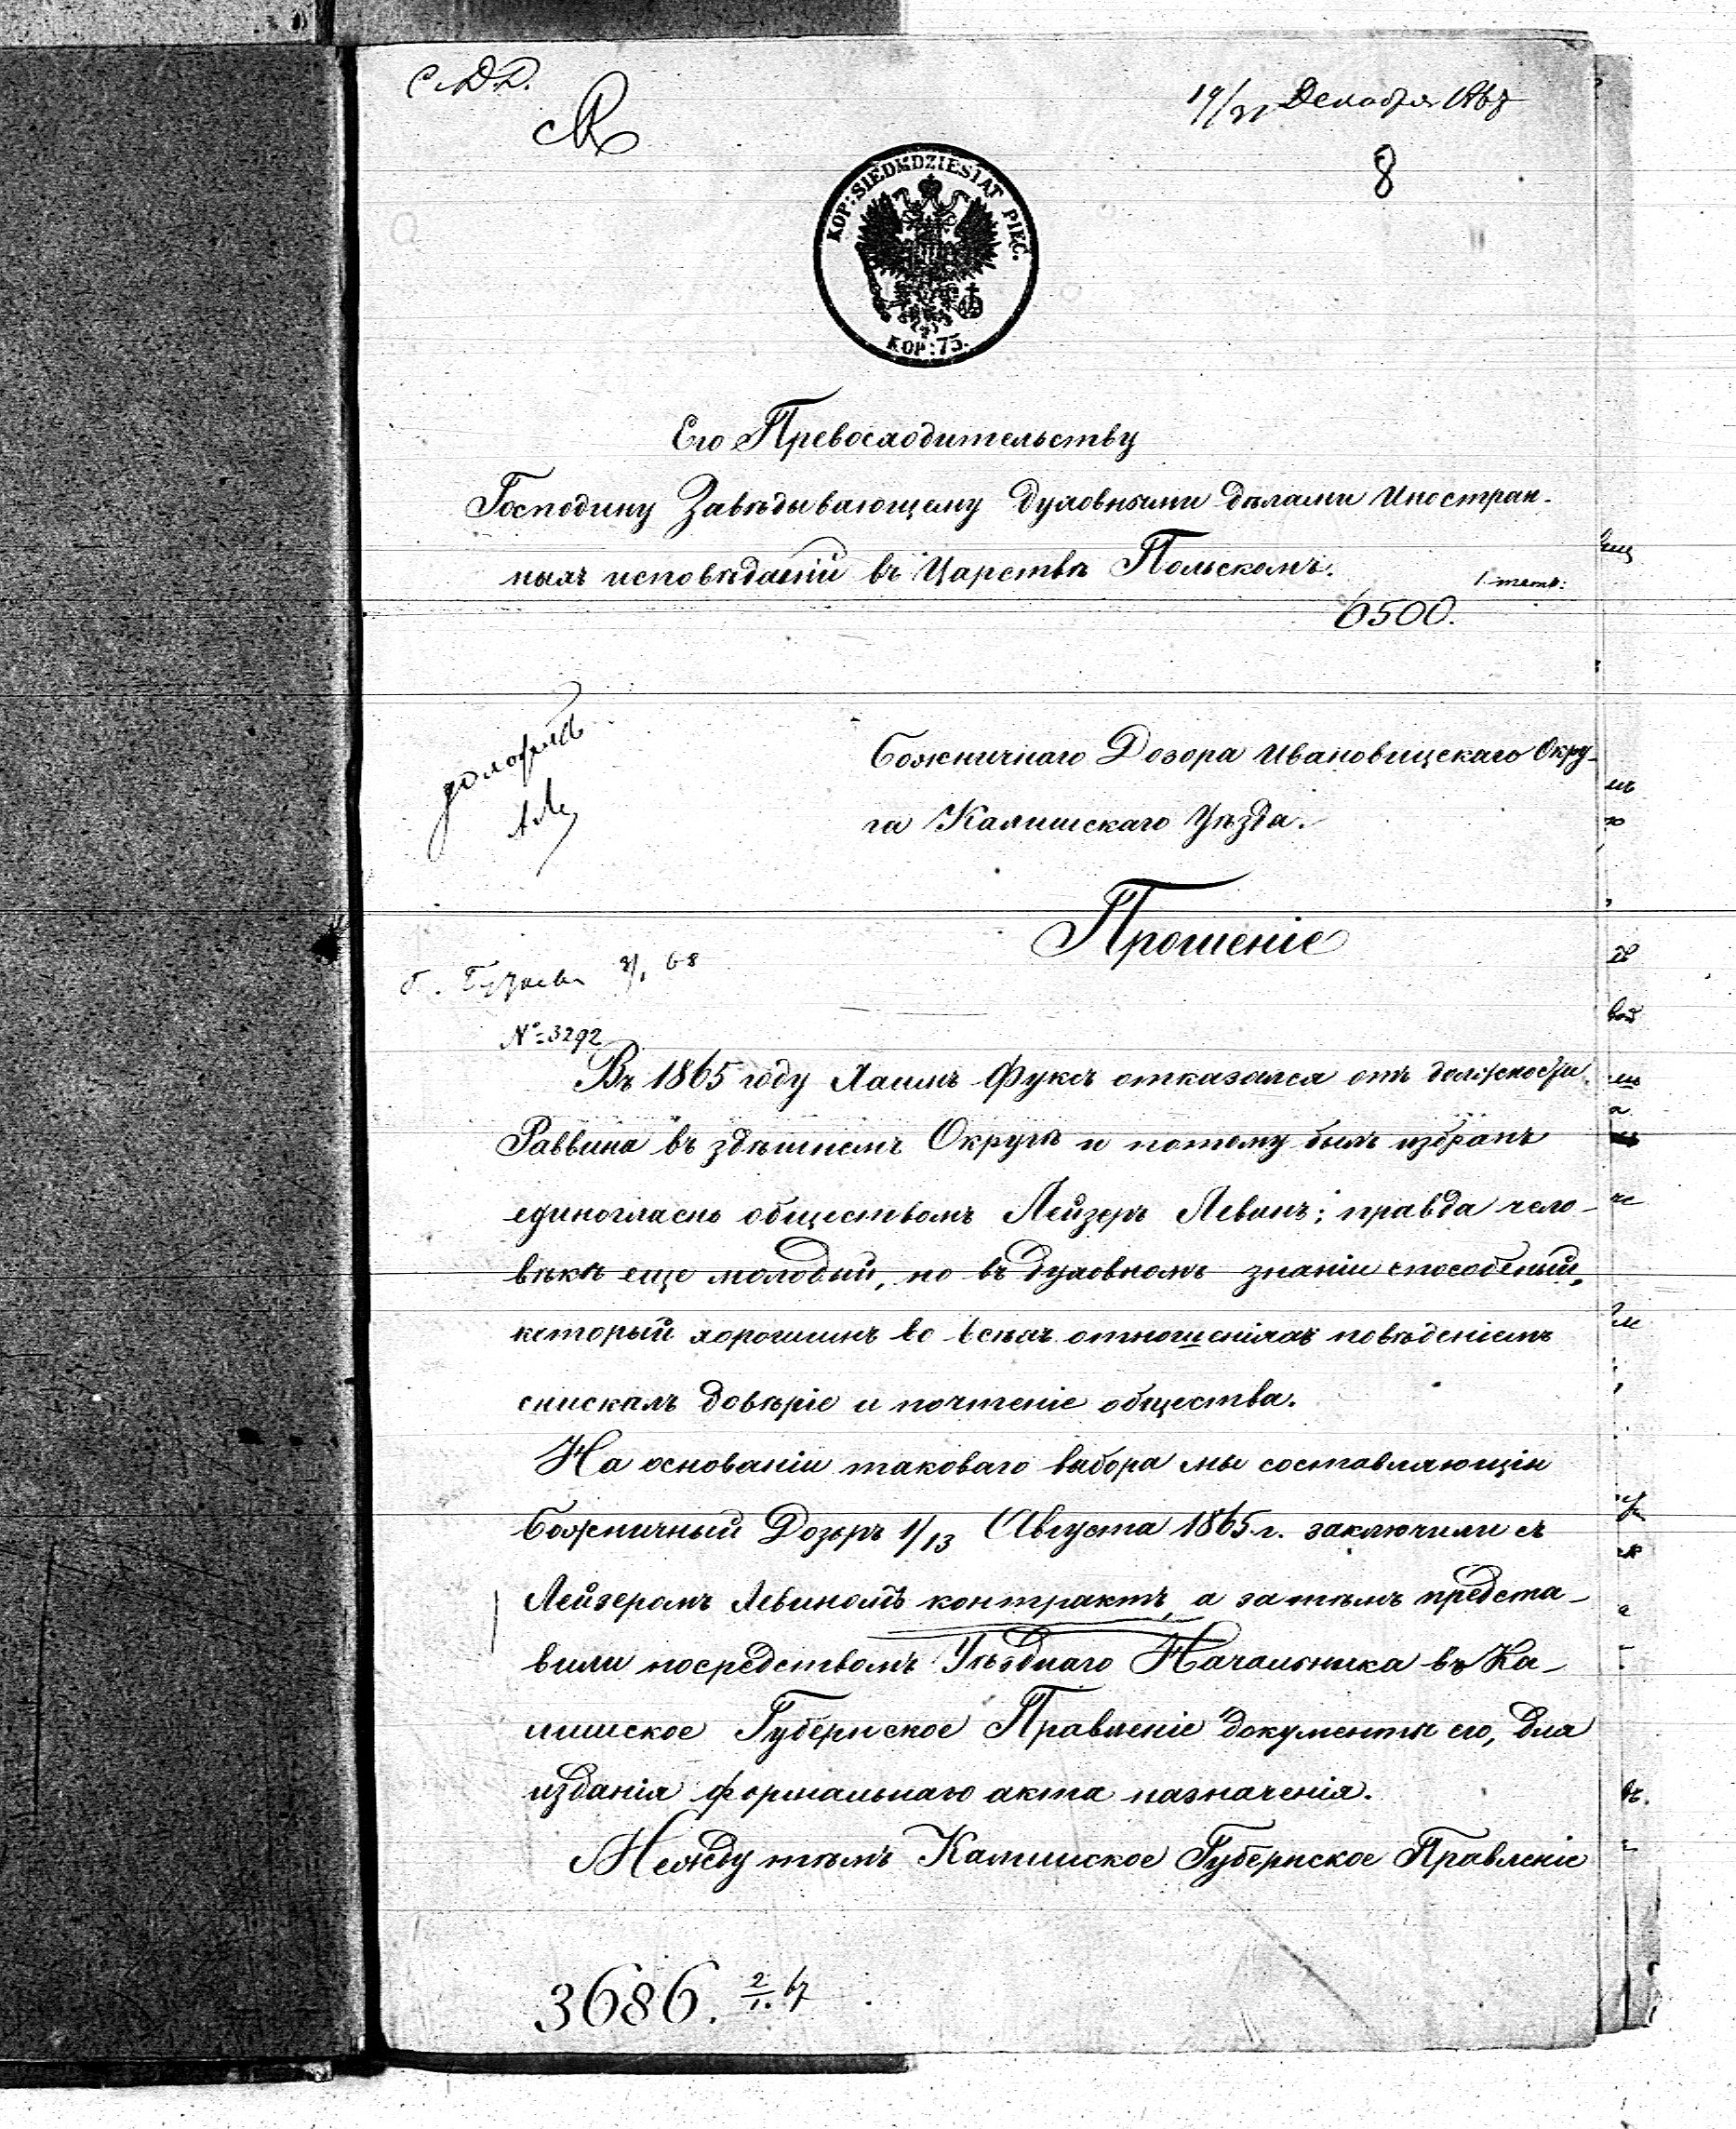 С.Д.Д.
19/31 Декабря 1867
8
KOP: SIEDMDZIESIĄT PIĘĆ.
KOP: 75.
Его Превосходительству
Господину Завѣдывающему духовными дѣлами Иностран-
ныхъ исповѣданій въ Царствѣ Польскомъ.
6500.
Божничнаго Дозора Ивановицскаго Окру-
га Калишскаго Уѣзда.
Прошеніе
№ 3292
Въ 1865 году Хаимъ Фуксъ отказался отъ должности
Раввина въ здѣшнемъ Округѣ и потому былъ избранъ
единогласно обществомъ Лейзеръ Левинъ; правда чело-
вѣкъ еще молодый, но въ духовномъ знаніи способный,
который хорошимъ во всѣхъ отношеніяхъ повѣденіемъ
снискалъ довѣріе и почтеніе общества.
На основаніи таковаго выбора мы составляющіи
Божничный Дозоръ 1/13 Августа 1865 г. заключили съ
Лейзеромъ Левиномъ контрактъ, а затѣмъ предста-
вили посредствомъ Уѣзднаго Начальника въ Ка-
лишское Губернское Правленіе документы его, для
изданія формальнаго акта назначенія.
Между тѣмъ Калишское Губернское Правленіе
3686.